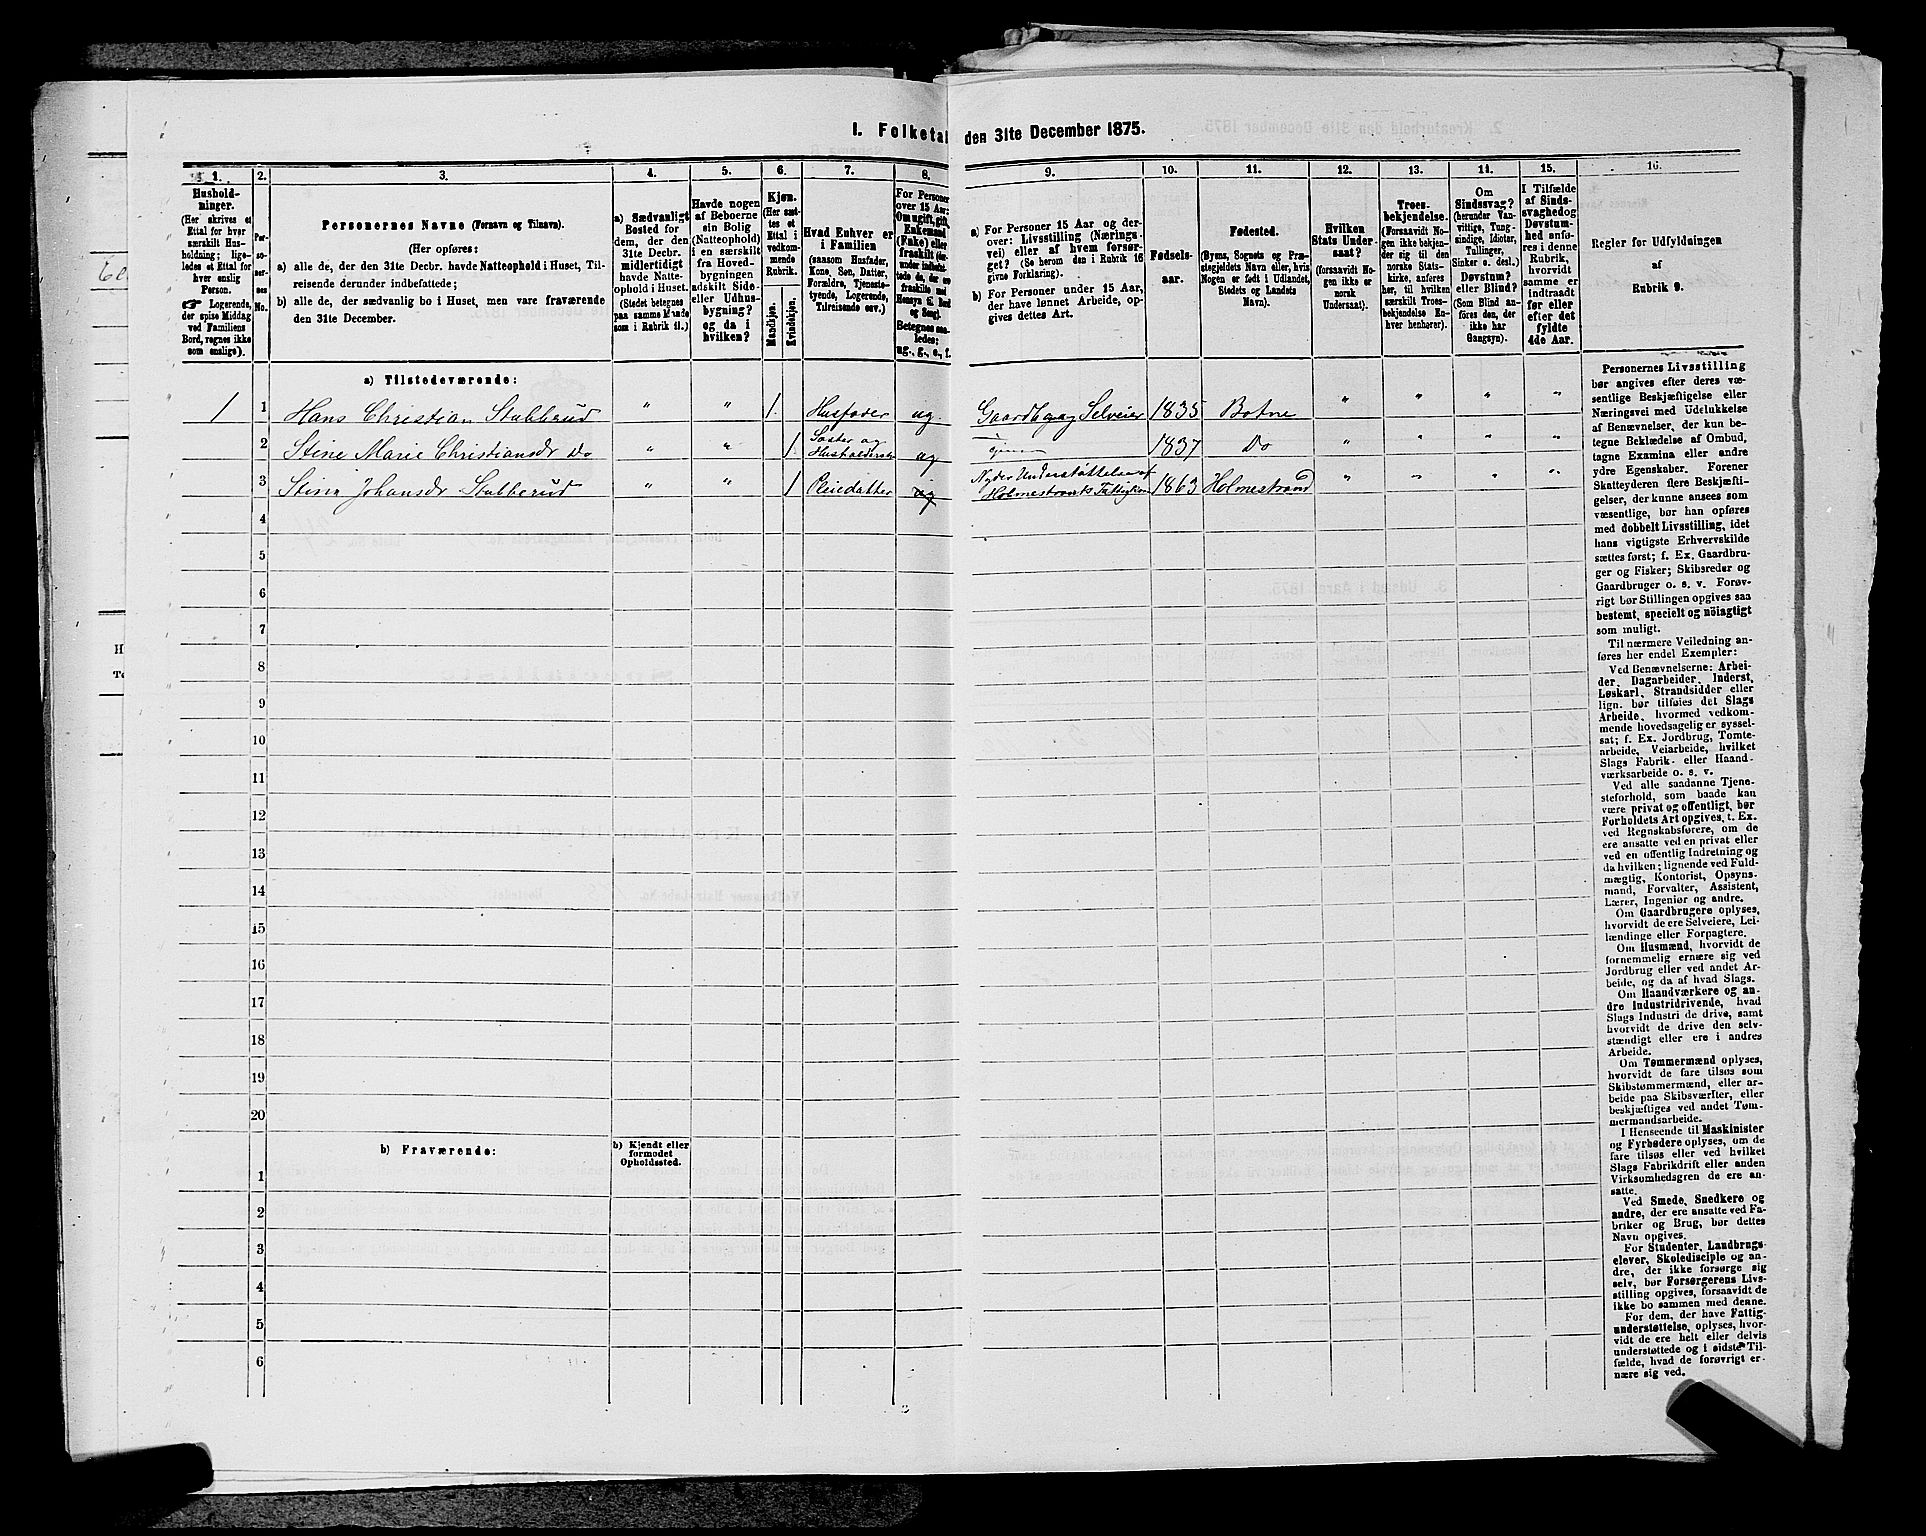 I. Folketal den 31te December 1875.
1.
2.
3.
4.
5.
6.
7.
8.
9.
10.
11.
12.
13.
14.
15.
16.
Hushold-
ninger.
(Her skrives et
Ettal for hver
særskilt Hus-
holdning; lige-
ledes et Ettal for
hver enslig
Person.
☛ Logerende,
der spise Middag
ved Familiens
Bord, regnes ikke
som enslige).
Per-
so-
ner-
nes
No.
Personernes Navne (Fornavn og Tilnavn).
(Her opføres:
a) alle de, der den 31te Decbr. havde Natteophold i Huset, Til-
reisende derunder indbefattede;
b) alle de, der sædvanlig bo i Huset, men vare fraværende
den 31te December.
a) Sædvanligt
Bosted for
dem, der den
31te Decbr.
midlertidigt
havde Natte-
ophold i Huset.
(Stedet betegnes
paa samme Maade
som i Rubrik 11.)
Havde nogen
af Beboerne
sin Bolig
(Natteophold)
i en særskilt
fra Hoved-
bygningen
adskilt Side-
eller Udhus-
bygning?
og da i
hvilken?
Kjøn.
(Her sæt-
tes et
Ettal i
vedkom-
mende
Rubrik.
Mandkjøn.
Kvindekjøn.
Hvad Enhver er
i Familien
(saasom Husfader,
Kone, Søn, Datter,
Forældre, Tjeneste-
tyende, Logerende,
Tilreisende osv.)
For Personer
over 15 Aar:
Om ugift, gift,
Enkemand
(Enke) eller
fraskilt
Betegnes saa-
ledes:
ug., g., e., f.
a) For Personer 15 Aar og der-
over: Livsstilling (Nærings-
vei) eller af hvem forsør-
get? (Se herom den i Rubrik 16
givne Forklaring).
b) For Personer under 15 Aar,
der have lønnet Arbeide, op-
gives dettes Art.
Fødsels-
aar.
Fødested.
(Byens, Sognets og Præ-
stegjeldets Navn eller, hvis
Nogen er født i Udlandet,
Stedets og Landets
Navn).
Hvilken
Stats Under-
saat?
(forsaavidt No-
gen ikke er
norsk
Undersaat).
Troes-
bekjendelse.
(Forsaavidt No-
gen ikke bekjen-
der sig til den
norske Stats-
kirke, anføres
her, til hvilken
særskilt Troes-
bekjendelse En-
hver henhører).
Om
Sindssvag?
(herunder Van-
vittige, Tung-
sindige, Idioter,
Tullinger,
Sinker o. desl.).
Døvstum?
eller Blind?
(Som Blind an-
føres den, der
ikke har
Gangsyn).
I Tilfælde
af Sinds-
svaghed og
Døvstum-
hed anfø-
res i denne
Rubrik,
hvorvidt
samme er
indtraadt
før eller
efter det
fyldte
4de Aar.
Regler for Udfyldningen
af
Rubrik 9.
a) Tilstedeværende:
1 1 Hans Christian Stubberud " " 1. Husfader ug. Selveier 1835 Botne " " " "
2 Stine Marie Christiansdr do " " 1. Søster og Husholderske ug 1837 Do " " " "
3 Stina Johansdr Stubberud " " 1 Pleiedatter ug Nyder Understøttelse af Holmestrands 1863 Holmestrand " " " "
4
5
6
7
8
9
10
11
12
13
14
15
16
17
18
19
20
b) Fraværende:
b) Kjendt eller
formodet
Opholdssted.
1
2
3
4
5
6
Personernes Livsstilling
bør angives efter deres væ-
sentlige Beskjæftigelse eller
Næringsvei med Udelukkelse
af Benævnelser, der kun be-
tegne Beklædelse af Ombud,
tagne Examina eller andre
ydre Egenskaber. Forener
Skatteyderen flere Beskjæfti-
gelser, der kunne ansees som
væsentlige, bør han opføres
med dobbelt Livsstilling, idet
hans vigtigste Erhvervskilde
sættes først; f. Ex. Gaardbru-
ger og Fisker; Skibsreder og
Gaardbruger o. s. v. Forøv-
rigt bør Stillingen opgives saa
bestemt, specielt og nöiagtigt
som muligt.
Til nærmere Veiledning an-
føres her endel Exempler:
Ved Benævnelserne: Arbei-
der, Dagarbeider, Inderst,
Løskarl, Strandsidder eller
lign. bør tilføies det Slags
Arbeide, hvormed vedkom-
mende hovedsagelig er syssel-
sat; f. Ex. Jordbrug, Tomte-
arbeide, Veiarbeide, hvilket
Slags Fabrik- eller Haand-
værksarbeide o. s. v.
Ved alle saadanne Tjene-
steforhold, som baade kan
være privat og offentligt, bør
Forholdets Art opgives, t. Ex.
ved Regnskabsførere, om de
ere ansatte ved en privat eller
ved en offentlig Indretning og
da hvilken; lignende ved Fuld-
mægtig, Kontorist, Opsyns-
mand, Forvalter, Assistent,
Lærer, Ingeniør og andre.
Om Gaardbrugere oplyses,
hvorvidt de ere Selveiere, Lei-
lændinge eller Forpagtere.
Om Husmænd, hvorvidt de
fornemmelig ernære sig ved
Jordbrug eller ved andet Ar-
beide, og da af hvad Slags.
Om Haandværkere og an-
dre Industridrivende, hvad
Slags Industri de drive, samt
hvorvidt de drive den selv-
stændigt eller ere i andres
Arbeide.
Om Tømmermænd oplyses,
hvorvidt de fare tilsøs som
Skibstømmermænd, eller ar-
beide paa Skibsværfter, eller
beskjæftiges ved andet Tøm-
mermandsarbeide.
I Henseende til Maskinister
og Fyrbødere oplyses, om de
fare tilsøs eller ved hvilket
Slags Fabrikdrift eller anden
Virksomhedsgren de ere an-
satte.
Ved Smede, Snedkere og
andre, der ere ansatte ved Fa-
briker og Brug, bør dettes
Navn opgives.
For Studenter, Landbrugs-
elever, Skoledisciple og an-
dre, der ikke forsørge sig
selv, bør Forsørgerens Livs-
stilling opgives, forsaavidt de
ikke bo sammen med denne.
For dem, der have Fattig-
understøttelse, oplyses, hvor-
vidt de ere helt eller delvis
understøttede og i sidste Til-
fælde, hvad de forøvrigt er-
nære sig ved.